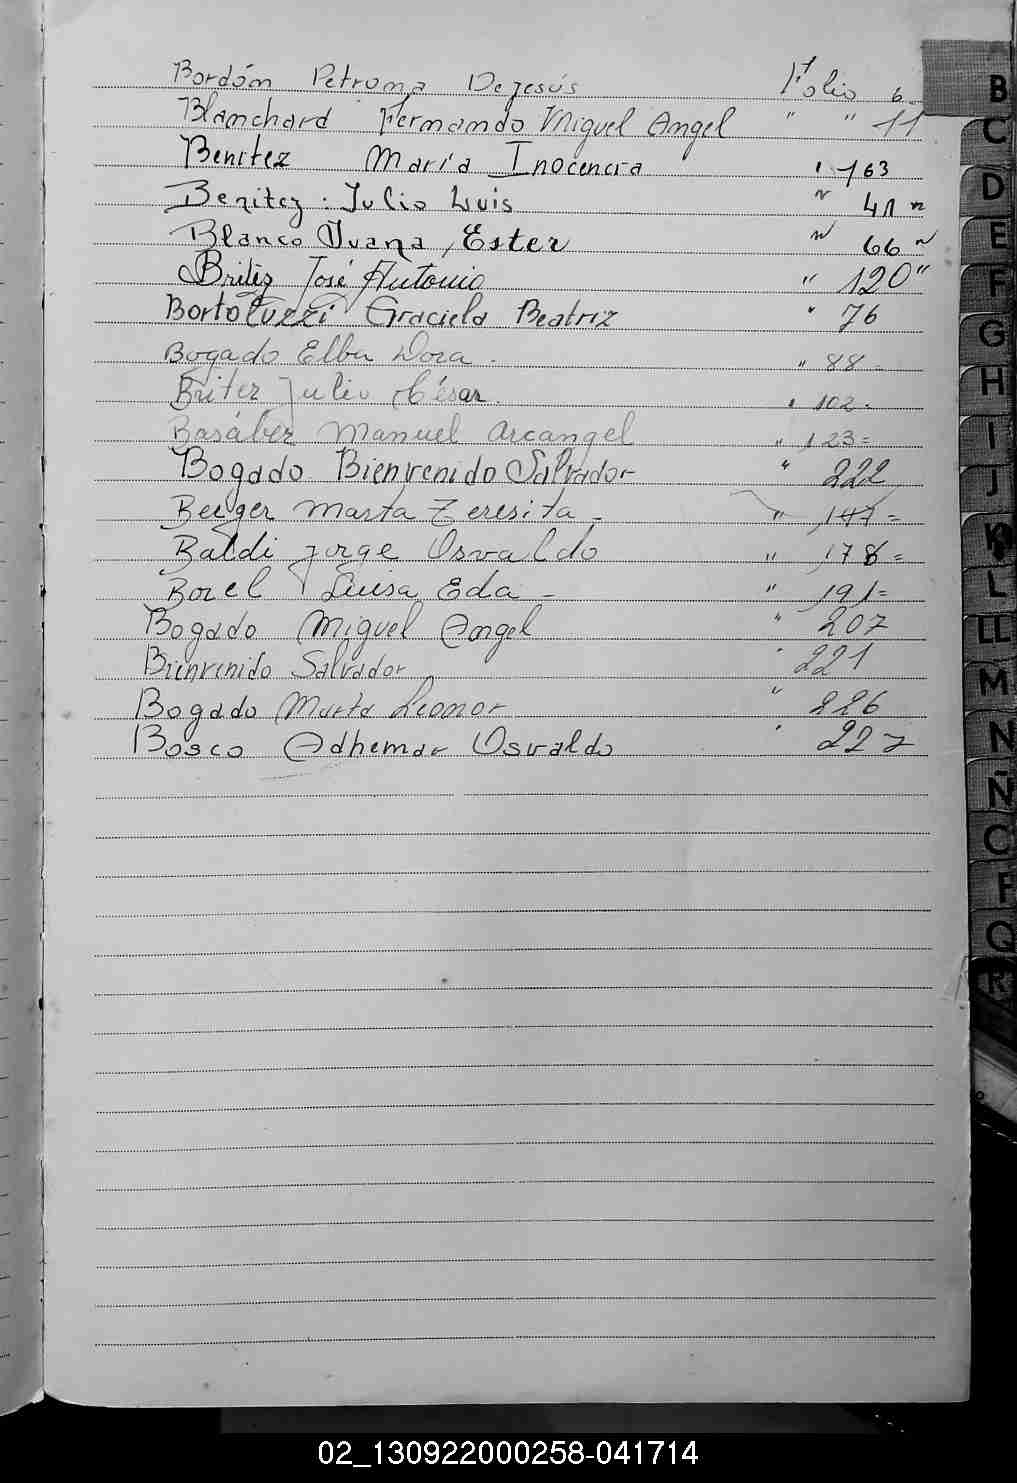 Bordóm Petrona Dejesús Folio 6
Blanchard Fernando Miguel Angel " " 11
Benitez María Inocencia " 163
Benitez Julio Luis " 41 "
Blanco Juana Ester " 66 "
Britez José Antonio " 120 "
Bortoluzzi Graciela Beatriz " 76
Bogado Elba Dora. " 88 -
Britez Julio César. " 102 -
Basáber Manuel Arcangel " 123 =
Bogado Bienvenido Salvador " 222
Berger Marta Teresita - " =
Baldi Jorge Osvaldo " 178 =
Borel Luisa Eda - " 191 =
Bogado Miguel Angel " 207
Bienvenido Salvador " 221
Bogado Marta Leonor " 226
Bosco Adhemar Osvaldo " 227
B
C
D
E
F
G
H
I
J
K
L
LL
M
N
Ñ
O
P
Q
R
02_130922000258-041714